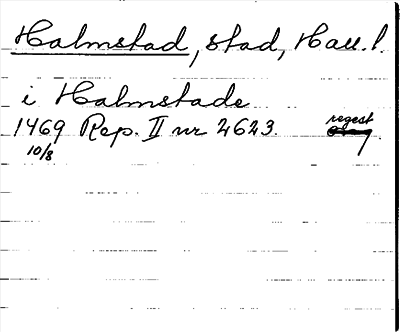 Halmstad, stad, Hall. l.
i Halmstade
1469 Rep. II nr 2623. regest
10/8